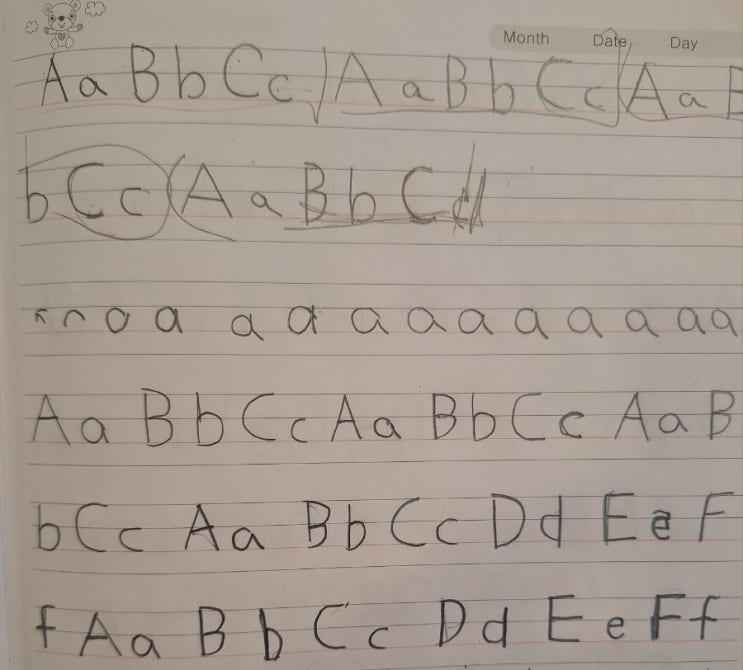 Month Date Day
Aa Bb Cc Aa Bb Cc Aa B
b Cc Aa Bb C
a a a a a a a a a a a a
Aa Bb Cc Aa Bb Cc Aa B
b Cc Aa Bb Cc Dd Ee F
f Aa Bb Cc Dd Ee Ff